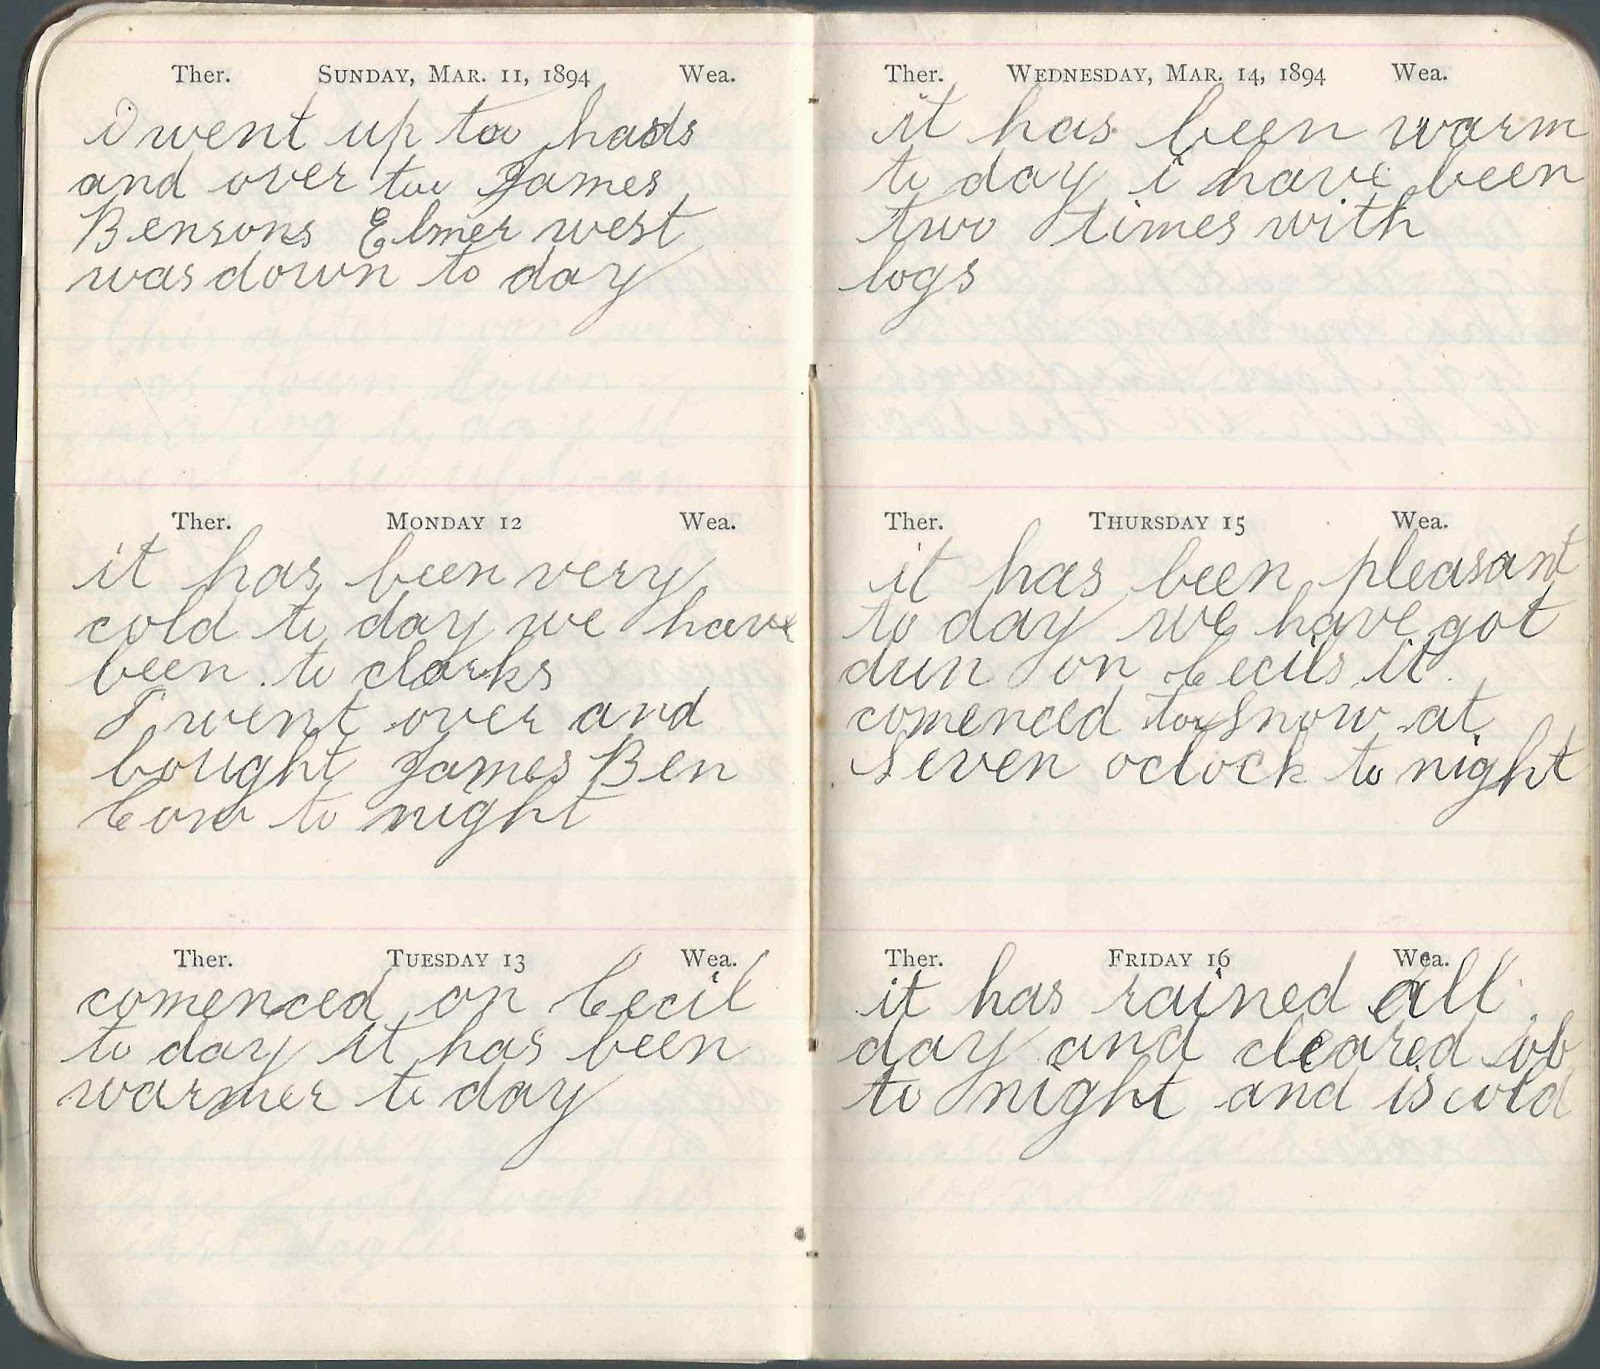 Ther. Sunday, Mar. 11, 1894 Wea.
i went up too hads
and over too James
Bensons Elmer west
was down to day
Ther. Monday 12 Wea.
it has been very
cold to day we have
been to clarks
I went over and
bought James Ben
Cow to night
Ther. Tuesday 13 Wea.
comenced on Cecil
to day it has been
warmer to day
Ther. Wednesday, Mar. 14, 1894 Wea.
it has been warm
to day i have been
two times with
logs
Ther. Thursday 15 Wea.
it has been pleasant
to day we have got
dun on Cecils it
comenced too snow at
seven oclock to night
Ther. Friday 16 Wea.
it has rained all
day and cleared
to night and is cold